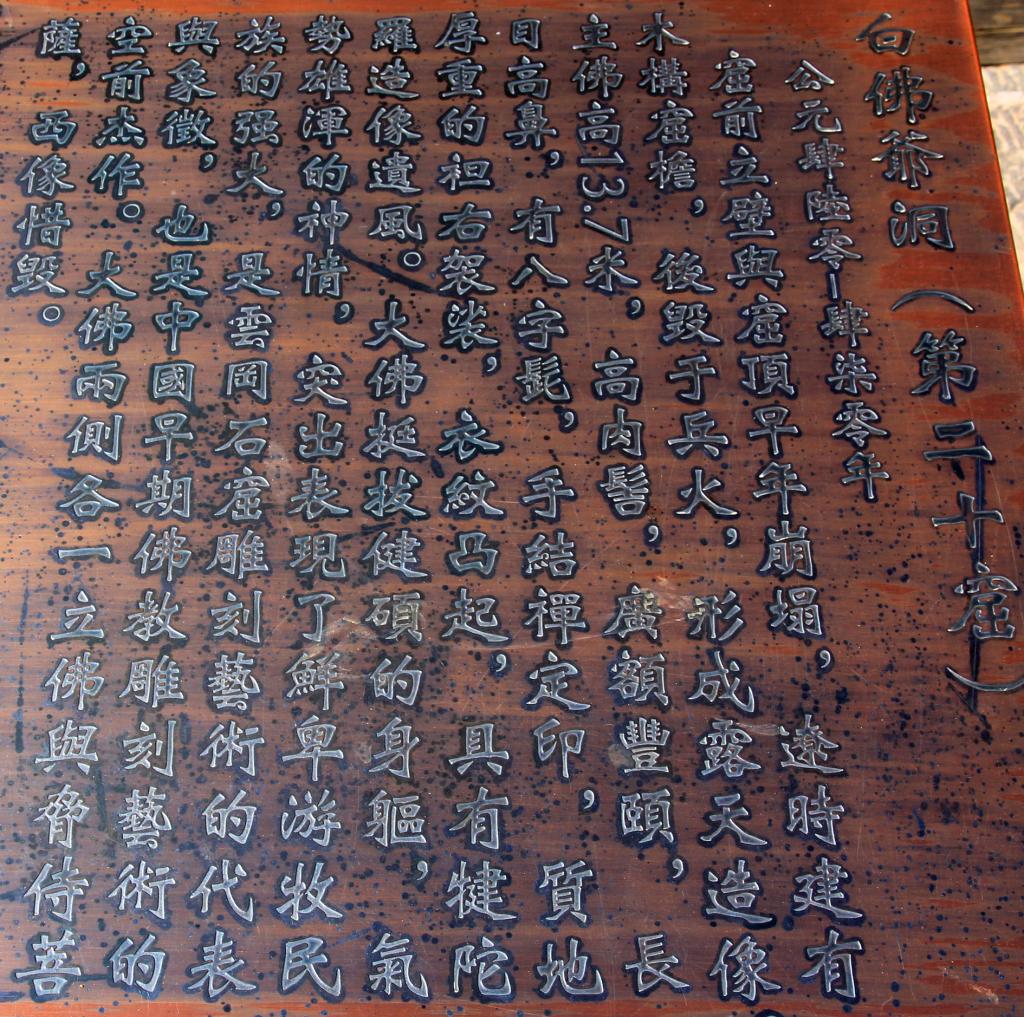 白佛爺洞（第二十窟）
公元肆陸零—肆柒零年
窟前立壁與窟頂早年崩塌，遼時建有
木構窟檐，後毀于兵火，形成露天造像
主佛高13.7米，高肉髻，廣額豐頤，長
目高鼻，有八字髭，手結禪定印，質地
厚重的袒右袈裟，衣紋凸起，具有犍陀
羅造像遺風。大佛挺拔健碩的身軀，氣
勢雄渾的神情，突出表現了鮮卑游牧民
族的强大，是雲岡石窟雕刻藝術的代表
與象徵，也是中國早期佛教雕刻藝術的
空前杰作。大佛兩側各一立佛與脅侍菩
薩，西像惜毀。